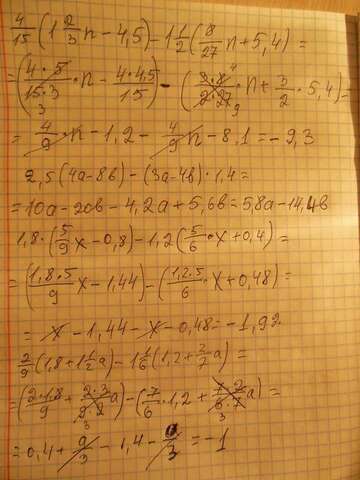 4/15(1 2/3 n - 4,5) - 1 1/2(8/27 n + 5,4) =
= (4·5/15·3 ·n - 4·4,5/15) - (3·8/2·27 ·n + 3/2 · 5,4) =
= 4/9 ·n - 1,2 - 4/9 n - 8,1 = - 9,3
2,5(4a-8b) - (3a-4b)·1,4 =
= 10a - 20b - 4,2a + 5,6b = 5,8a - 14,4b
1,8·(5/9 x - 0,8) - 1,2(5/6 ·x + 0,4) =
= (1,8·5/9 x - 1,44) - (1,2·5/6 ·x + 0,48) =
= x - 1,44 - x - 0,48 = - 1,92
2/9(1,8 + 1 1/2 a) - 1 1/6(1,2 + 2/7 a) =
= (2·1,8/9 + 2·3/9·2 a) - (7/6 ·1,2 + 7·2/6·7 a) =
= 0,4 + a/3 - 1,4 - a/3 = - 1